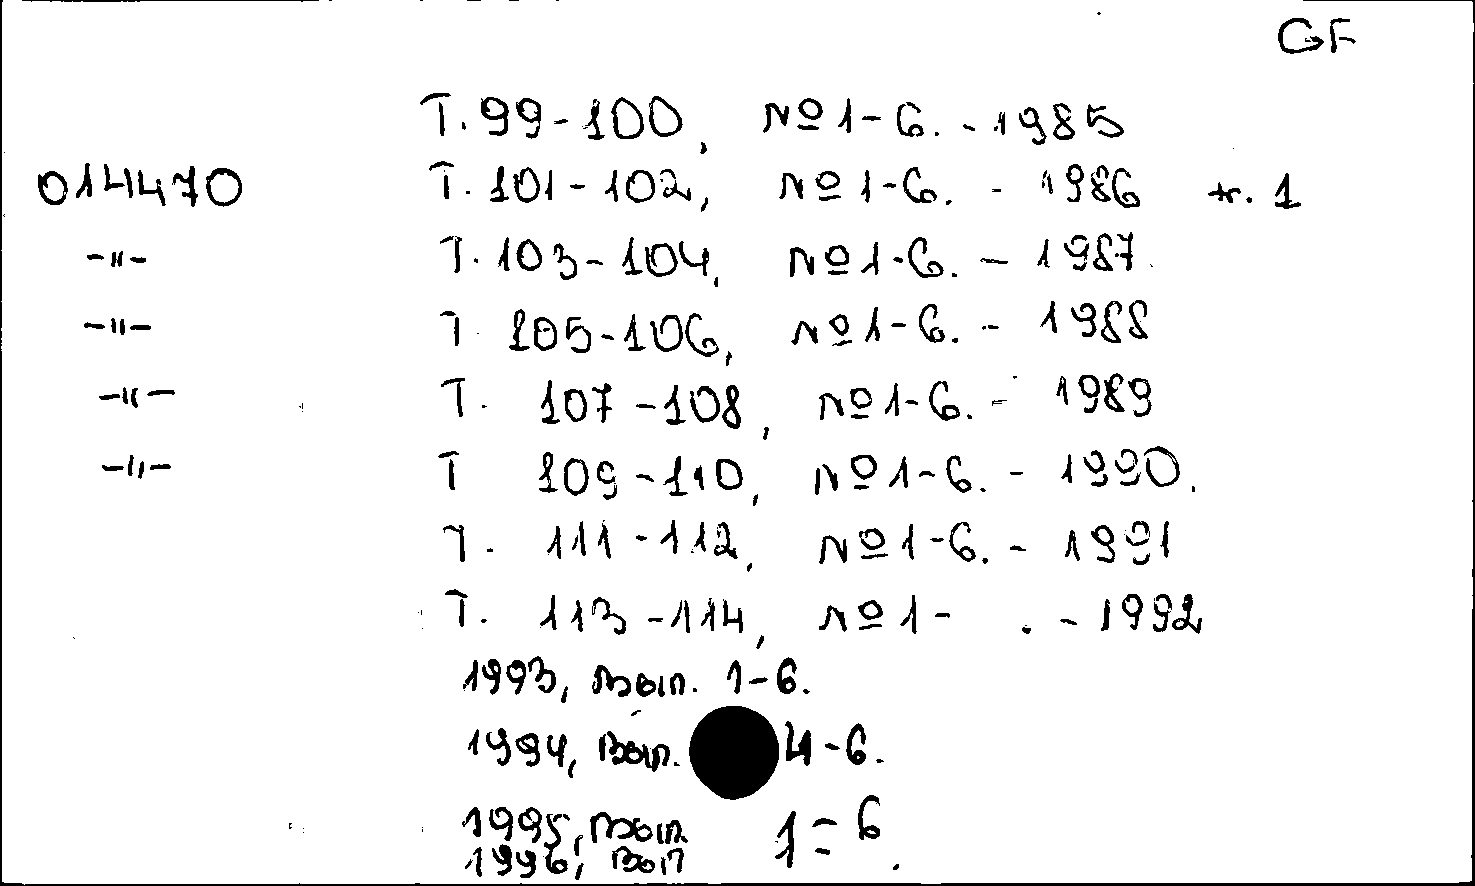 GF
Т. 99-100, № 1-6. - 1985
014470 Т. 101-102, № 1-6. - 1986 te. 1
-"- Т. 103-104, № 1-6. - 1987
-"- Т. 105-106, № 1-6. - 1988
-"- Т. 107-108, № 1-6. - 1989
-"- Т 109-110, № 1-6. - 1990.
Т. 111-112, № 1-6. - 1991
Т. 113-114, № 1- . - 1992
1993, Вып. 1-6.
1994, Вып. 4-6.
1995, Вып. 1-6
1996, Вып 1-6.